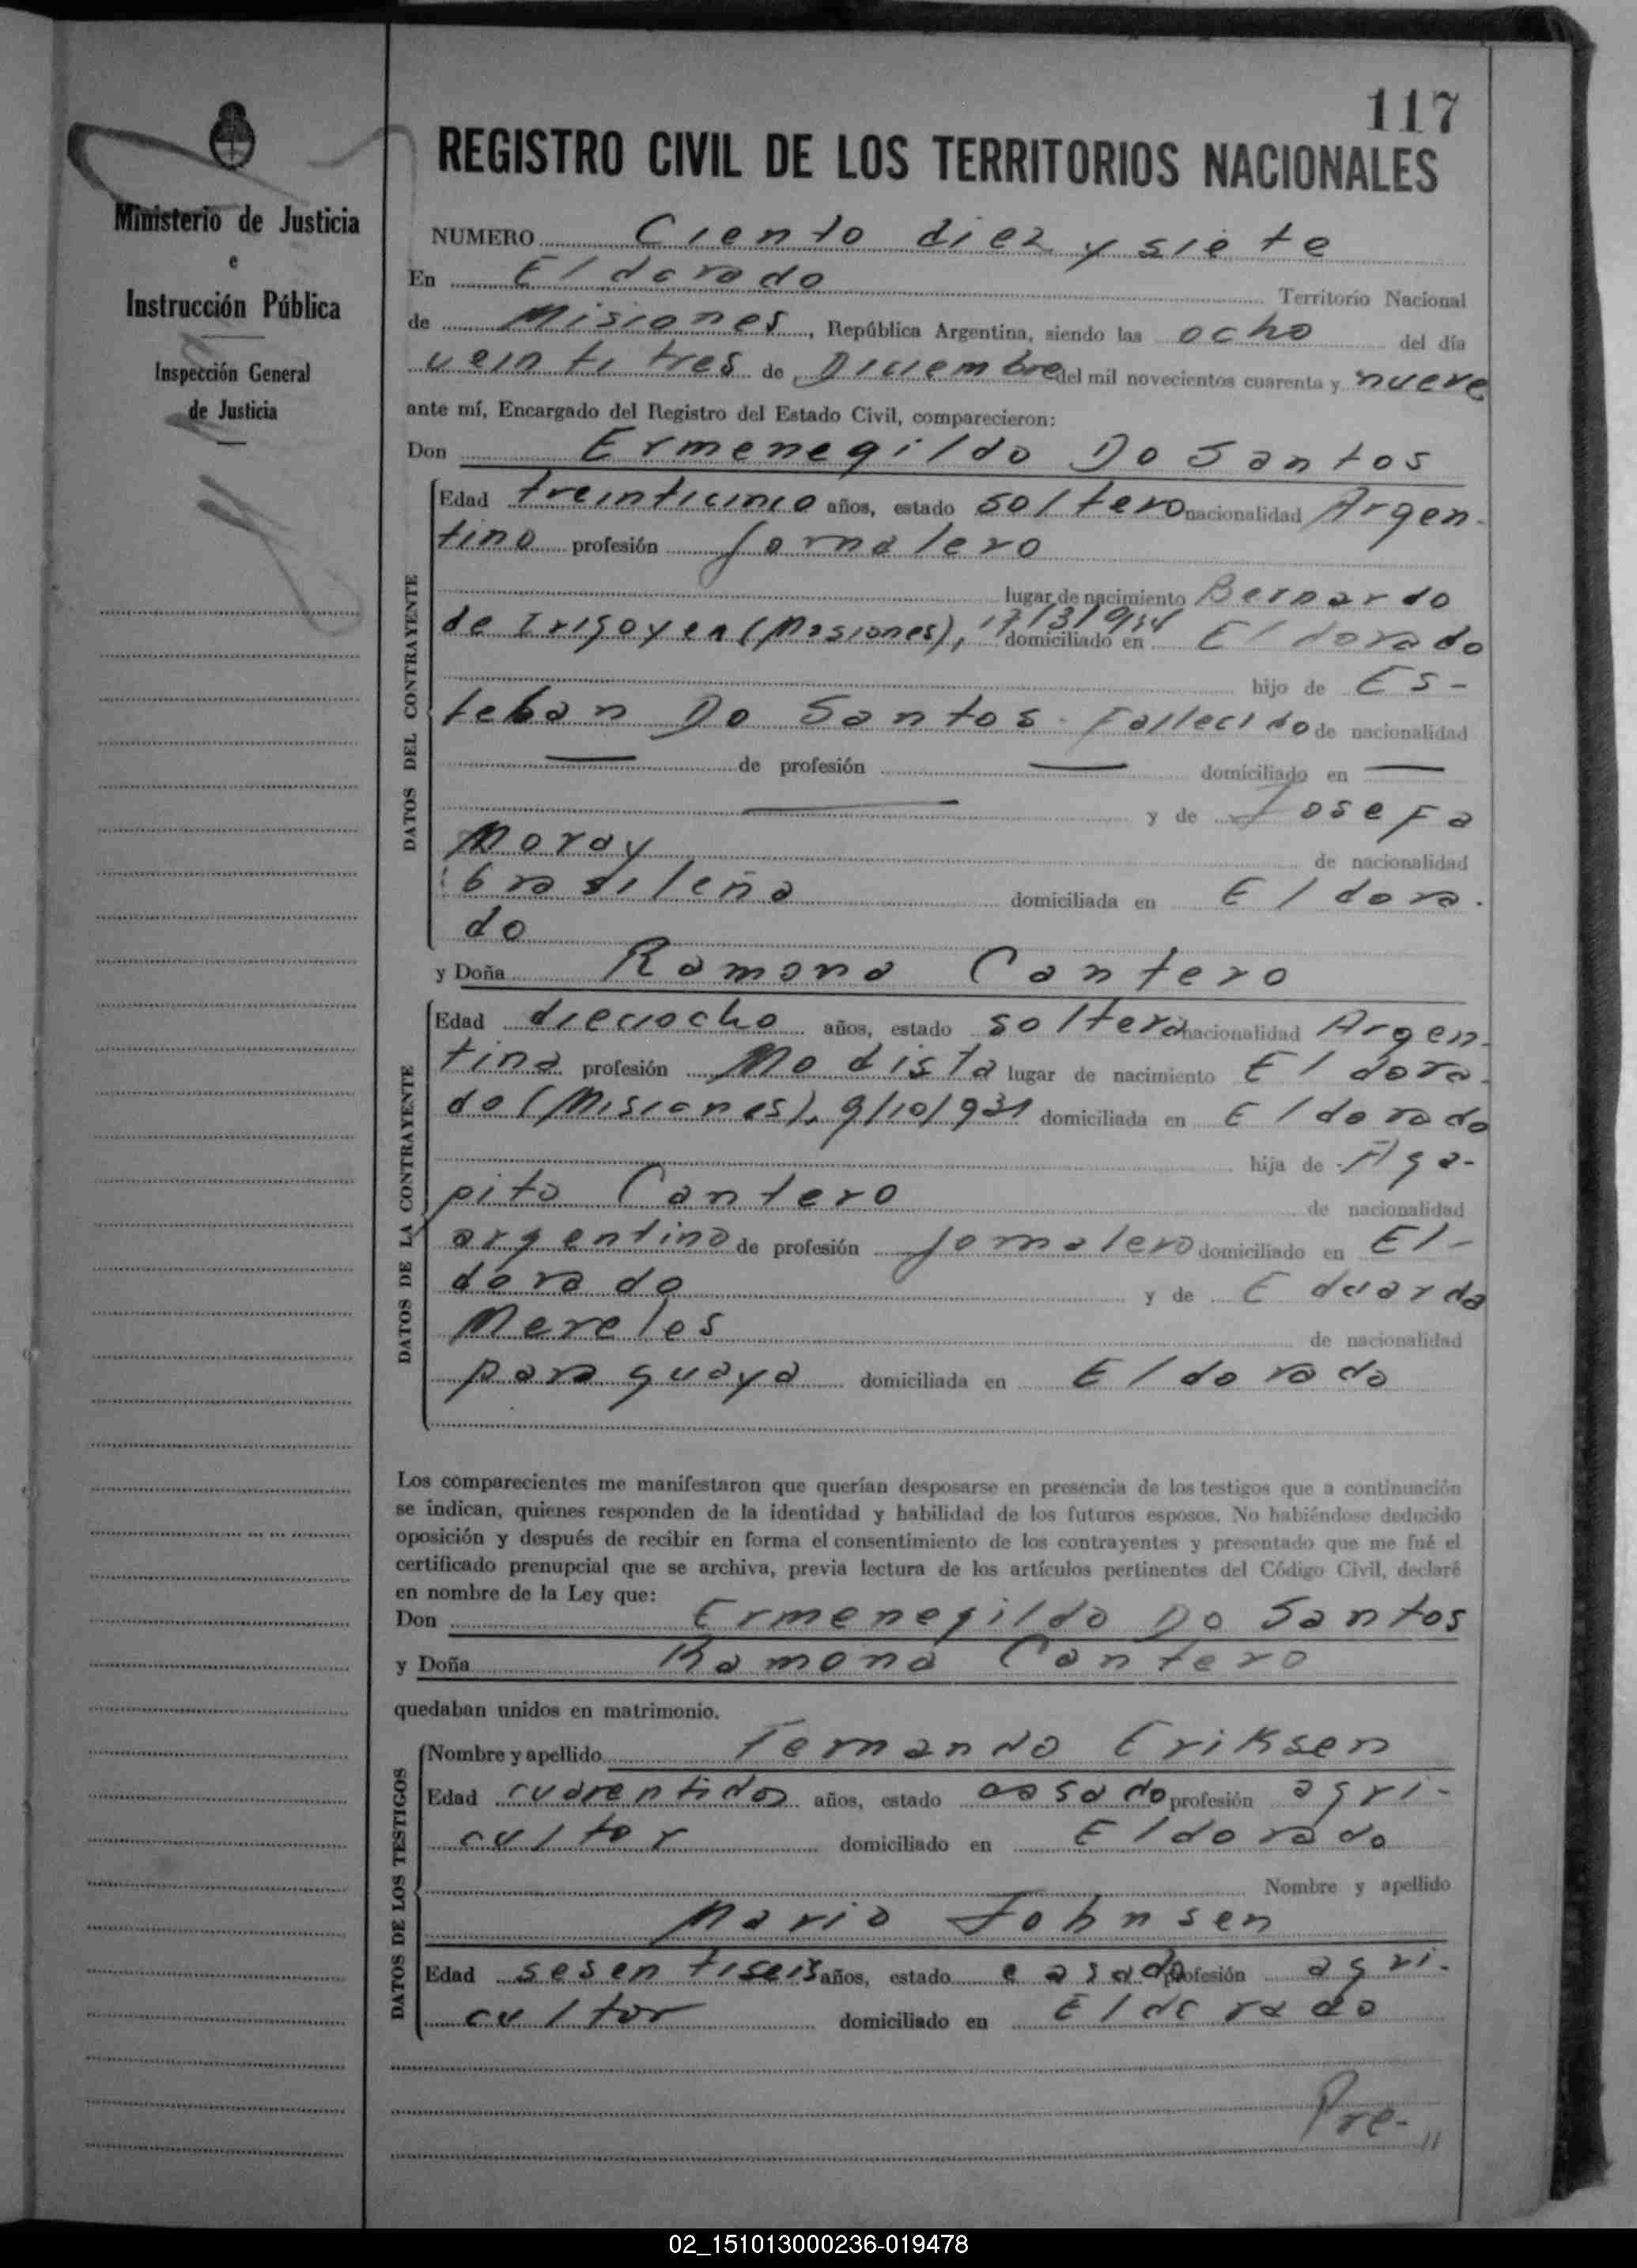 117
REGISTRO CIVIL DE LOS TERRITORIOS NACIONALES
Ministerio de Justicia
e
Instrucción Pública
Inspección General
de Justicia
NUMERO Ciento diez y siete
En Eldorado Territorio Nacional
de Misiones, República Argentina, siendo las ocho del día
veintitres de Diciembre del mil novecientos cuarenta y nueve
ante mí, Encargado del Registro del Estado Civil, comparecieron:
Don Ermenegildo Do Santos
DATOS DEL CONTRAYENTE
Edad treinticinco años, estado soltero nacionalidad Argen-
tino profesión Jornalero
lugar de nacimiento Bernardo
de Irigoyen (Misiones), 17/3/914 domiciliado en Eldorado
hijo de Es-
teban Do Santos - Fallecido de nacionalidad
— de profesión — domiciliado en —
— y de Josefa
Moray de nacionalidad
brasileña domiciliada en Eldora-
do
y Doña Ramona Cantero
DATOS DE LA CONTRAYENTE
Edad dieciocho años, estado soltera nacionalidad Argen-
tina profesión Modista lugar de nacimiento Eldora-
do (Misiones), 9/10/931 domiciliada en Eldorado
hija de Aga-
pito Cantero de nacionalidad
argentino de profesión Jornalero domiciliado en El-
dorado y de Eduarda
Mereles de nacionalidad
paraguaya domiciliada en Eldorado
Los comparecientes me manifestaron que querían desposarse en presencia de los testigos que a continuación
se indican, quienes responden de la identidad y habilidad de los futuros esposos. No habiéndose deducido
oposición y después de recibir en forma el consentimiento de los contrayentes y presentado que me fué el
certificado prenupcial que se archiva, previa lectura de los artículos pertinentes del Código Civil, declaré
en nombre de la Ley que:
Don Ermenegildo Do Santos
y Doña Ramona Cantero
quedaban unidos en matrimonio.
DATOS DE LOS TESTIGOS
Nombre y apellido Fernando Eriksen
Edad cuarentidos años, estado casado profesión agri-
cultor domiciliado en Eldorado
Nombre y apellido
Mario Johnsen
Edad sesentiseis años, estado casado profesión agri-
cultor domiciliado en Eldorado
Pre-//
02_151013000236-019478